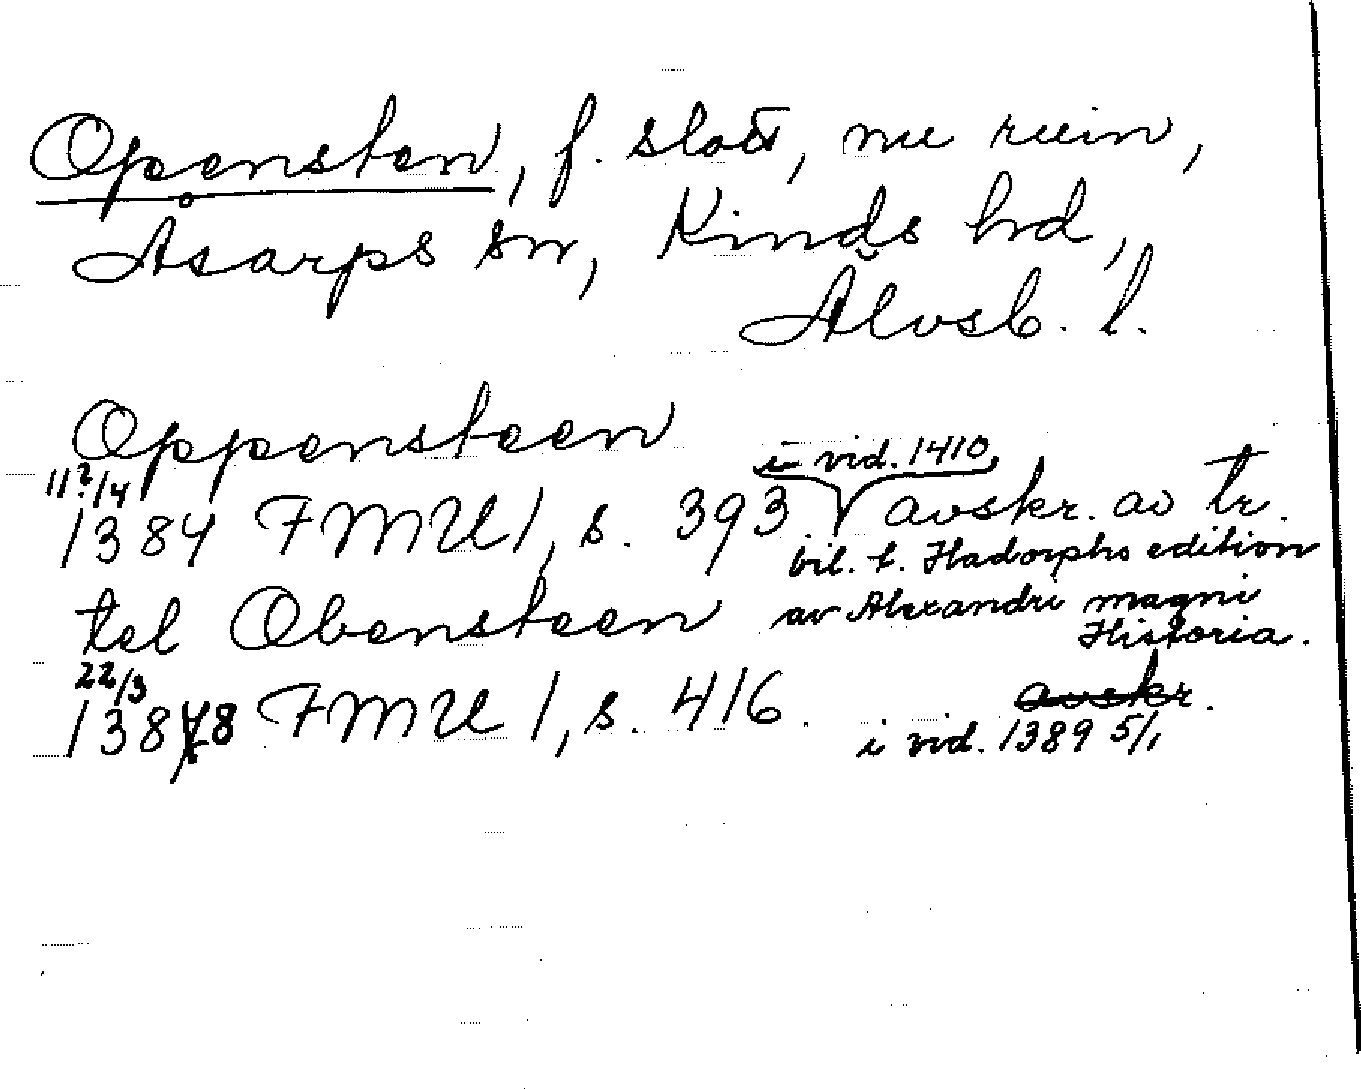 Opensten, f. slott, nu ruin,
Åsarps sn, Kinds hd,
Älvsb. l.
Oppensteen
11?/4 i vid. 1410
1384 FMU 1, s. 393 avskr. av tr.
bil. t. Hadorphs edition
tel Obensteen av Alexandri magni
Historia.
22/3
1388 FMU 1, s. 416. avskr.
i vid. 1389 5/1